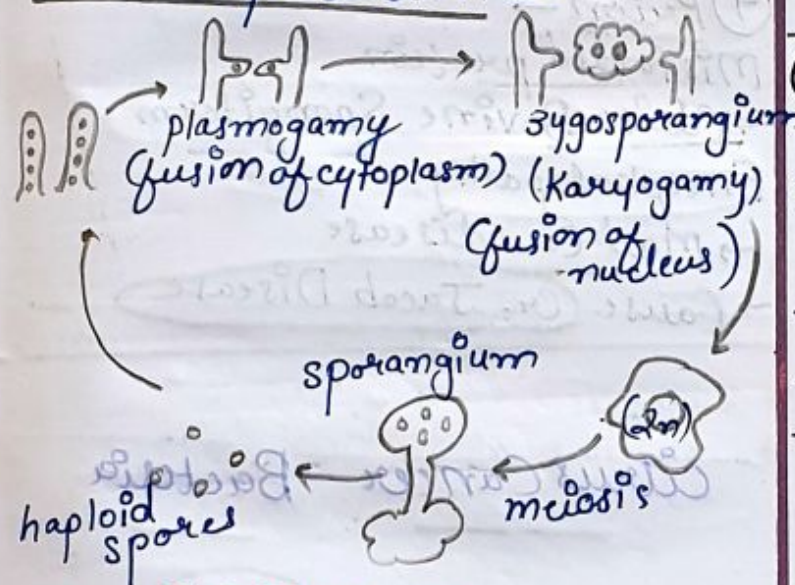 plasmogamy
(fusion of cytoplasm)
zygosporangium
(Karyogamy)
(fusion of
nucleus)
(2n)
meiosis
sporangium
haploid
spores